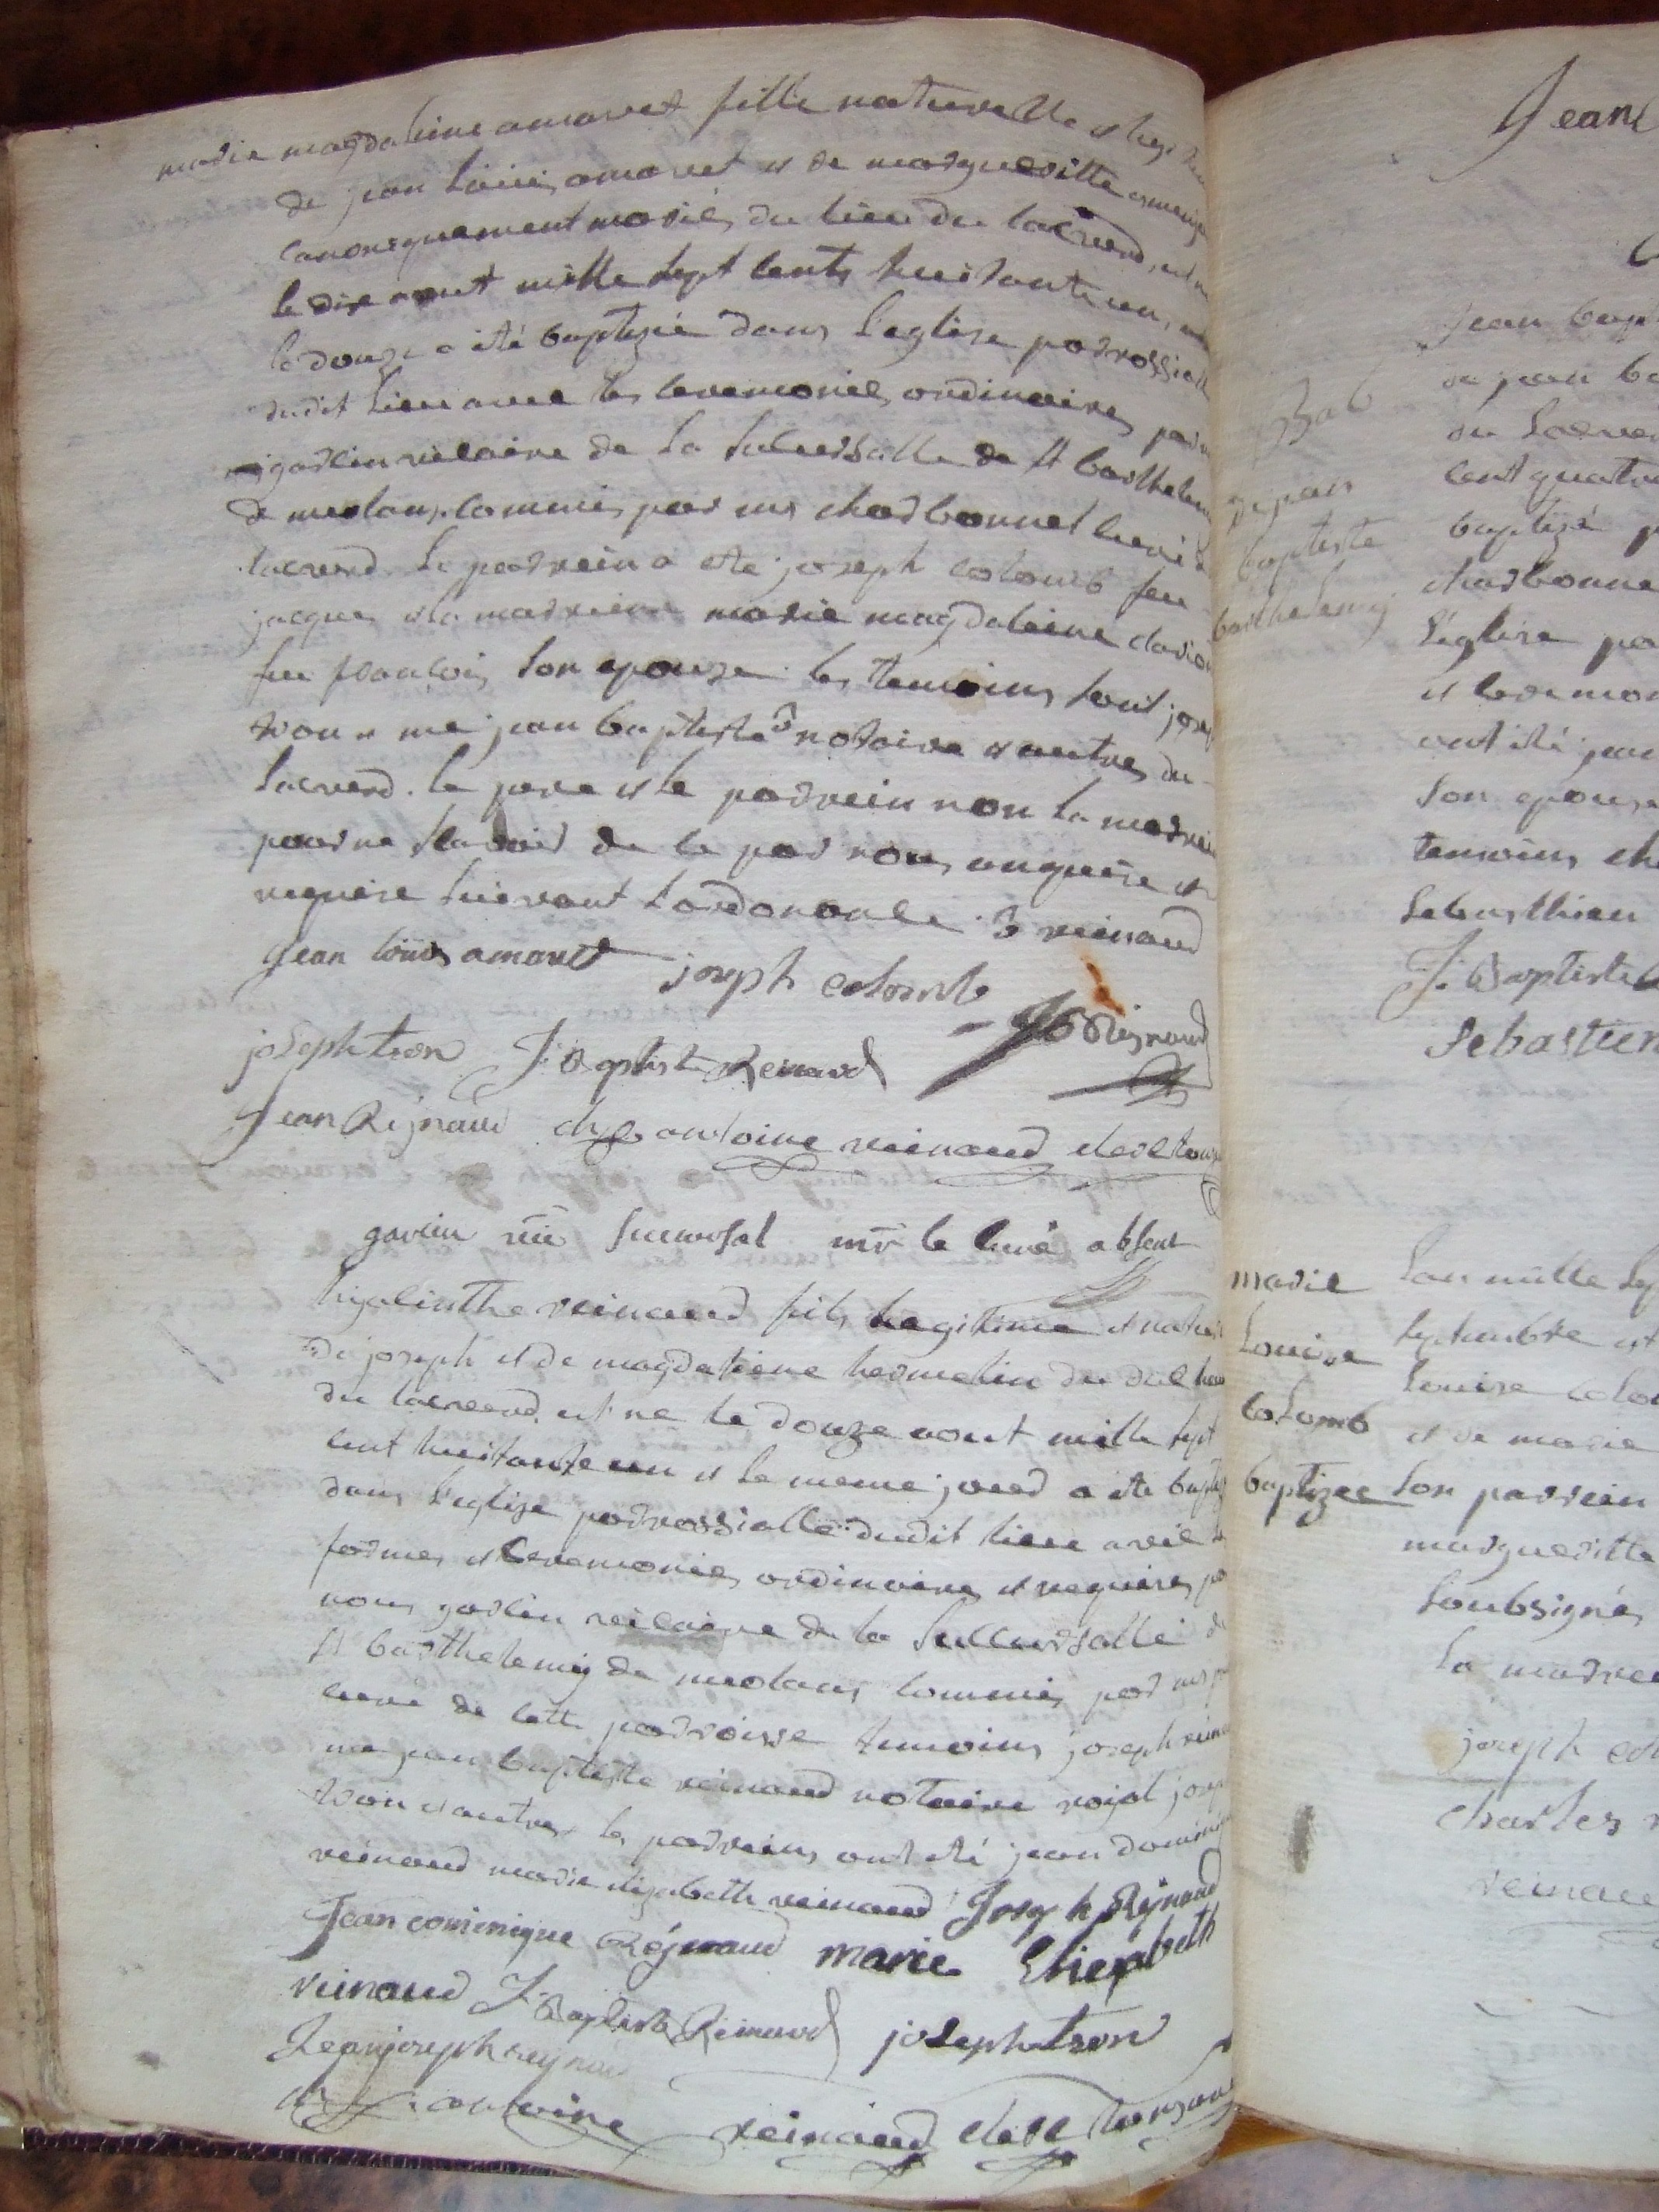 marie magdaleine amavet fille naturelle et
de jean louis amavet et de margueritte
canoniquement mariés du lieu du laverd, est
le dix aout mille sept cents huitante un,
le douze a été baptizée dans l'eglise parrossial
dudit lieu avec les ceremonies ordinaires par
garcin vicaire de la sucursalle de st barthelem
de meolans commis par mr charbonnel curé
laverd. le parrein a ete joseph colomb feu
jacques et la marreine marie magdaleine clarion
feu françois son epouze. les temoins sont josep
tron me jean baptiste notaire et autres du
laverd. le pere et le parrein non la marrein
pour ne scavoir de ce par nous enquise et
requise suivant l'ordonance. reinaud
jean louis amavet joseph colomb
joseph tron J. Baptiste Renaud JB Reynaud
Jean Reynaud antoine reinaud clerc tonsu
garcin vic sucursal mr le curé absent
hyacinthe reinaud fils legitime et natur
de joseph et de magdaleine hermelin du
du laverd est né le douze aout mille sept
cent huitante un et le meme jour a ete baptiz
dans l'eglize parrossialle dudit lieu avec
formes et ceremonies ordinaires et requises par
nous garcin vicaire de la succursalle de
st barthelemy de meolans commis par mr
curé de cette parroisse temoins joseph reina
me jean baptiste reinaud notaire royal josep
tron et autres les parreins ont eté jean domini
reinaud marie elizabeth reinaud Joseph Reynaud
Jean dominique Réynaud marie Eliezabeth
reinaud J. Baptiste Reinaud joseph tron
Jean joseph reynau
antoine reinaud clerc tonsure
Jean
Jean bapt
Bab
de jean ba
du laver
jean
cent quatre
baptiste
baptizé p
barthelemy
charbonne
l'eglise pa
et ceremon
ont été jea
son epouse
temoins ch
sebasthien
J. Baptiste
Sebastien
marie
L'an mille sep
louise
septembre est
louise colo
colomb
et de marie
baptizee
son parrein
marguerite
soubsignés
la marrei
joseph col
charles r
reinau